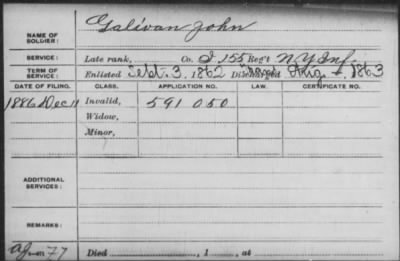 NAME OF SOLDIER: Galivan John
SERVICE: Late rank, Co. I 155 Reg't N.Y. Inf.
TERM OF SERVICE: Enlisted Sept. 3, 1862 Discharged 1863
DATE OF FILING. CLASS. APPLICATION NO. LAW. CERTIFICATE NO.
1886 Dec 11 Invalid, 591 050
Widow,
Minor,
ADDITIONAL SERVICES:
REMARKS:
77 Died , 1 , at